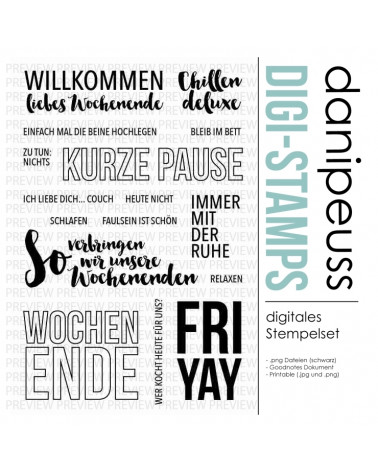 WILLKOMMEN
liebes Wochenende
Chillen
deluxe
EINFACH MAL DIE BEINE HOCHLEGEN
BLEIB IM BETT
ZU TUN:
NICHTS
KURZE PAUSE
ICH LIEBE DICH... COUCH
HEUTE NICHT
SCHLAFEN
FAULSEIN IST SCHÖN
IMMER
MIT
DER
RUHE
So verbringen
wir unsere
Wochenenden
RELAXEN
WOCHEN
ENDE
WER KOCHT HEUTE FÜR UNS?
FRI
YAY
danipeuss
DIGI-STAMPS
digitales
Stempelset
- .png Dateien (schwarz)
- Goodnotes Dokument
- Printable (.jpg und .png)
PREVIEW PREVIEW PREVIEW PREVIEW